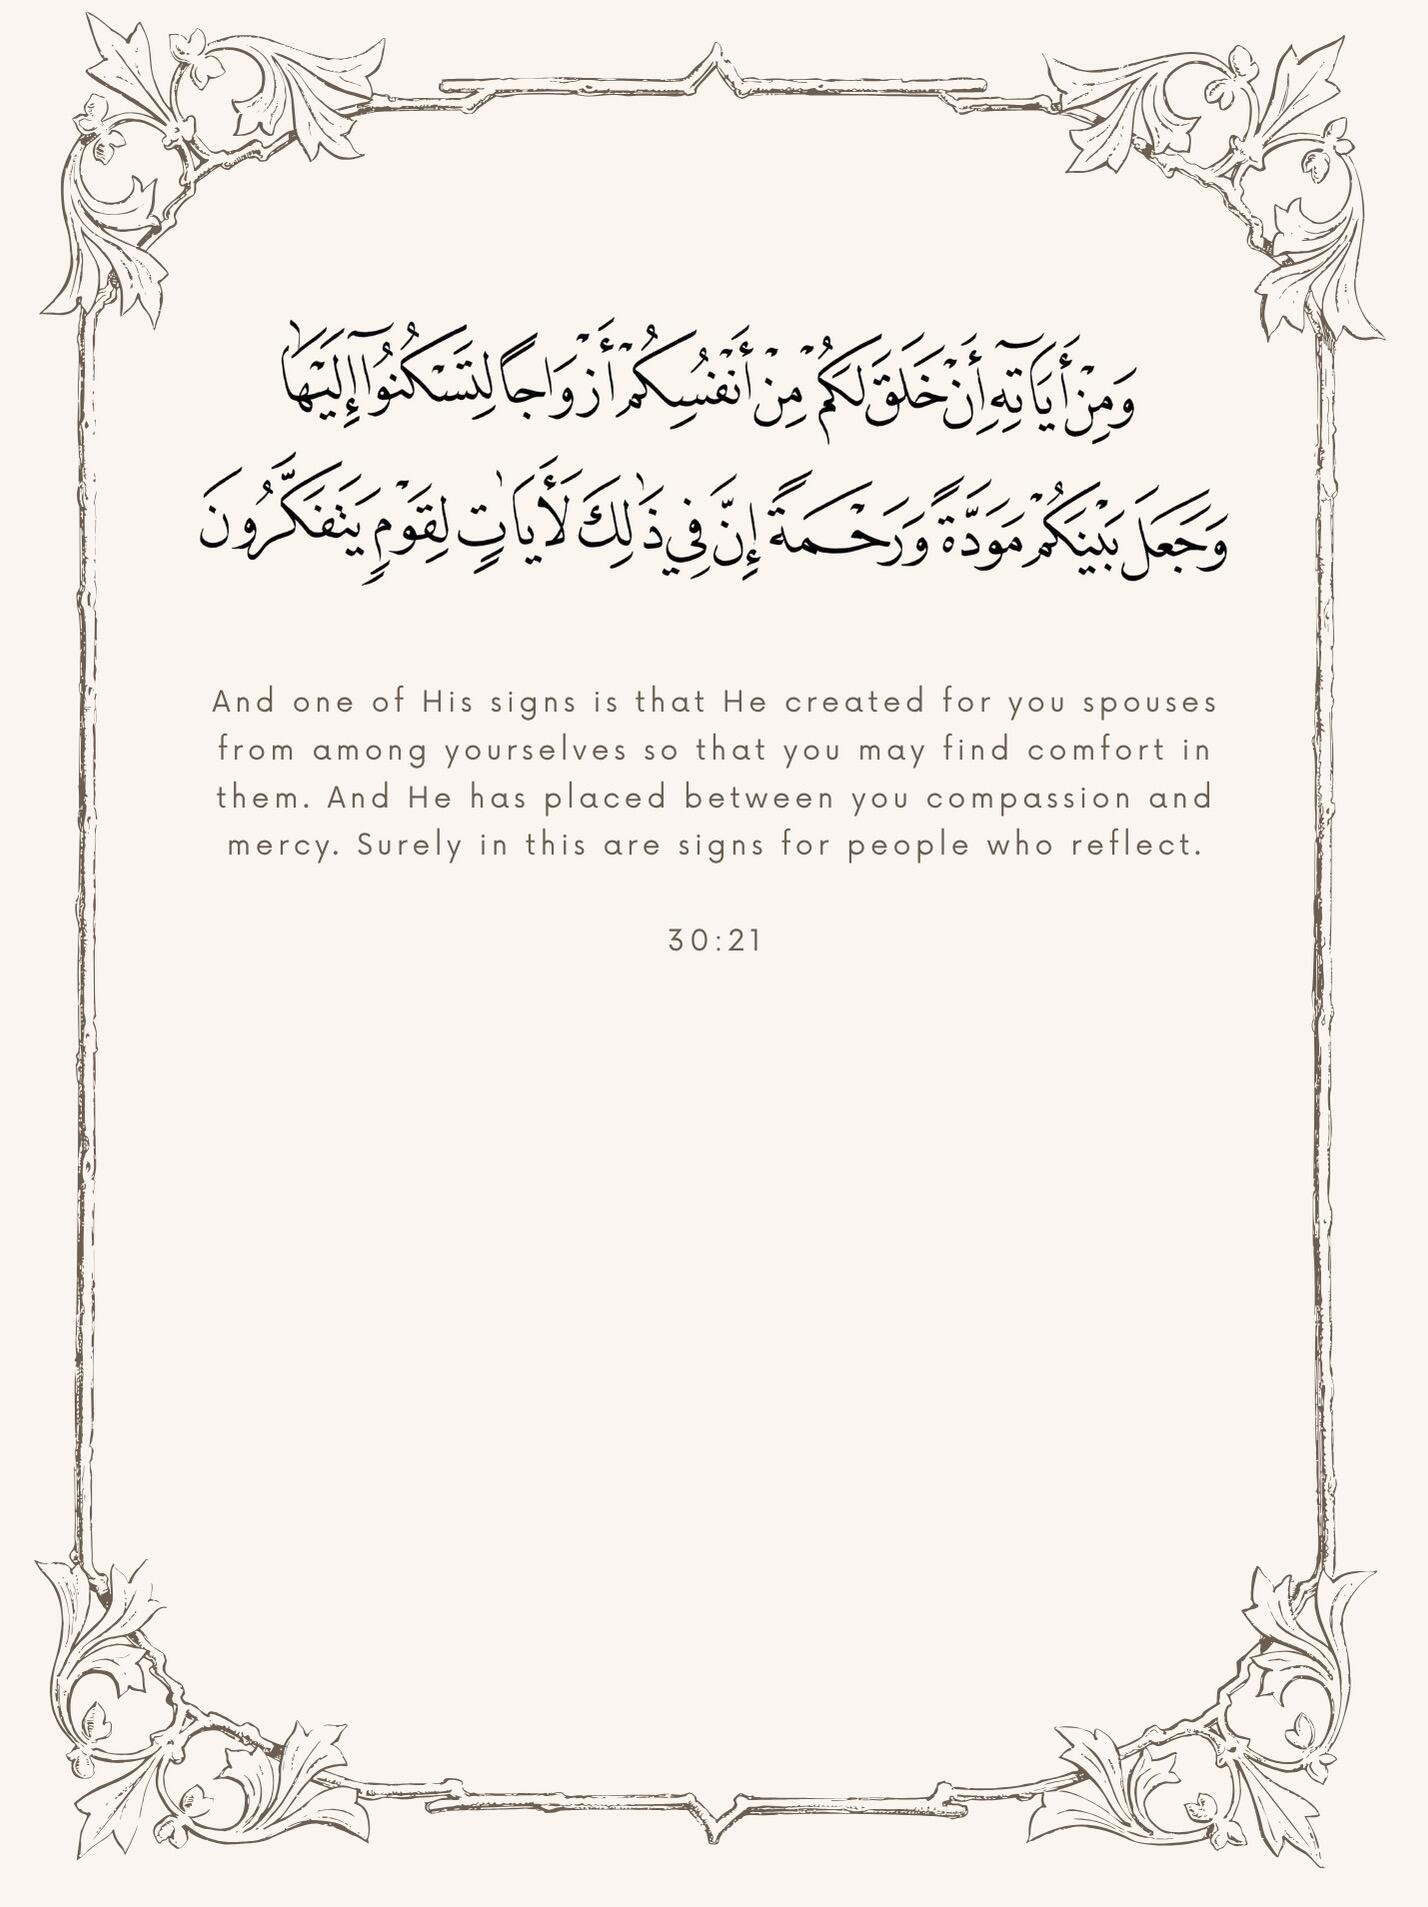 وَمِنْ أَيَاتِهِٓ أَنْ خَلَقَ لَكُمْ مِنْ أَنْفُسِكُمْ أَزْوَاجًا لِتَسْكُنُوٓا إِلَيْهَا
وَجَعَلَ بَيْنَكُمْ مَوَدَّةً وَرَحْمَةً إِنَّ فِي ذَٰلِكَ لَأَيَاتٍ لِقَوْمٍ يَتَفَكَّرُونَ
And one of His signs is that He created for you spouses
from among yourselves so that you may find comfort in
them. And He has placed between you compassion and
mercy. Surely in this are signs for people who reflect.
30:21